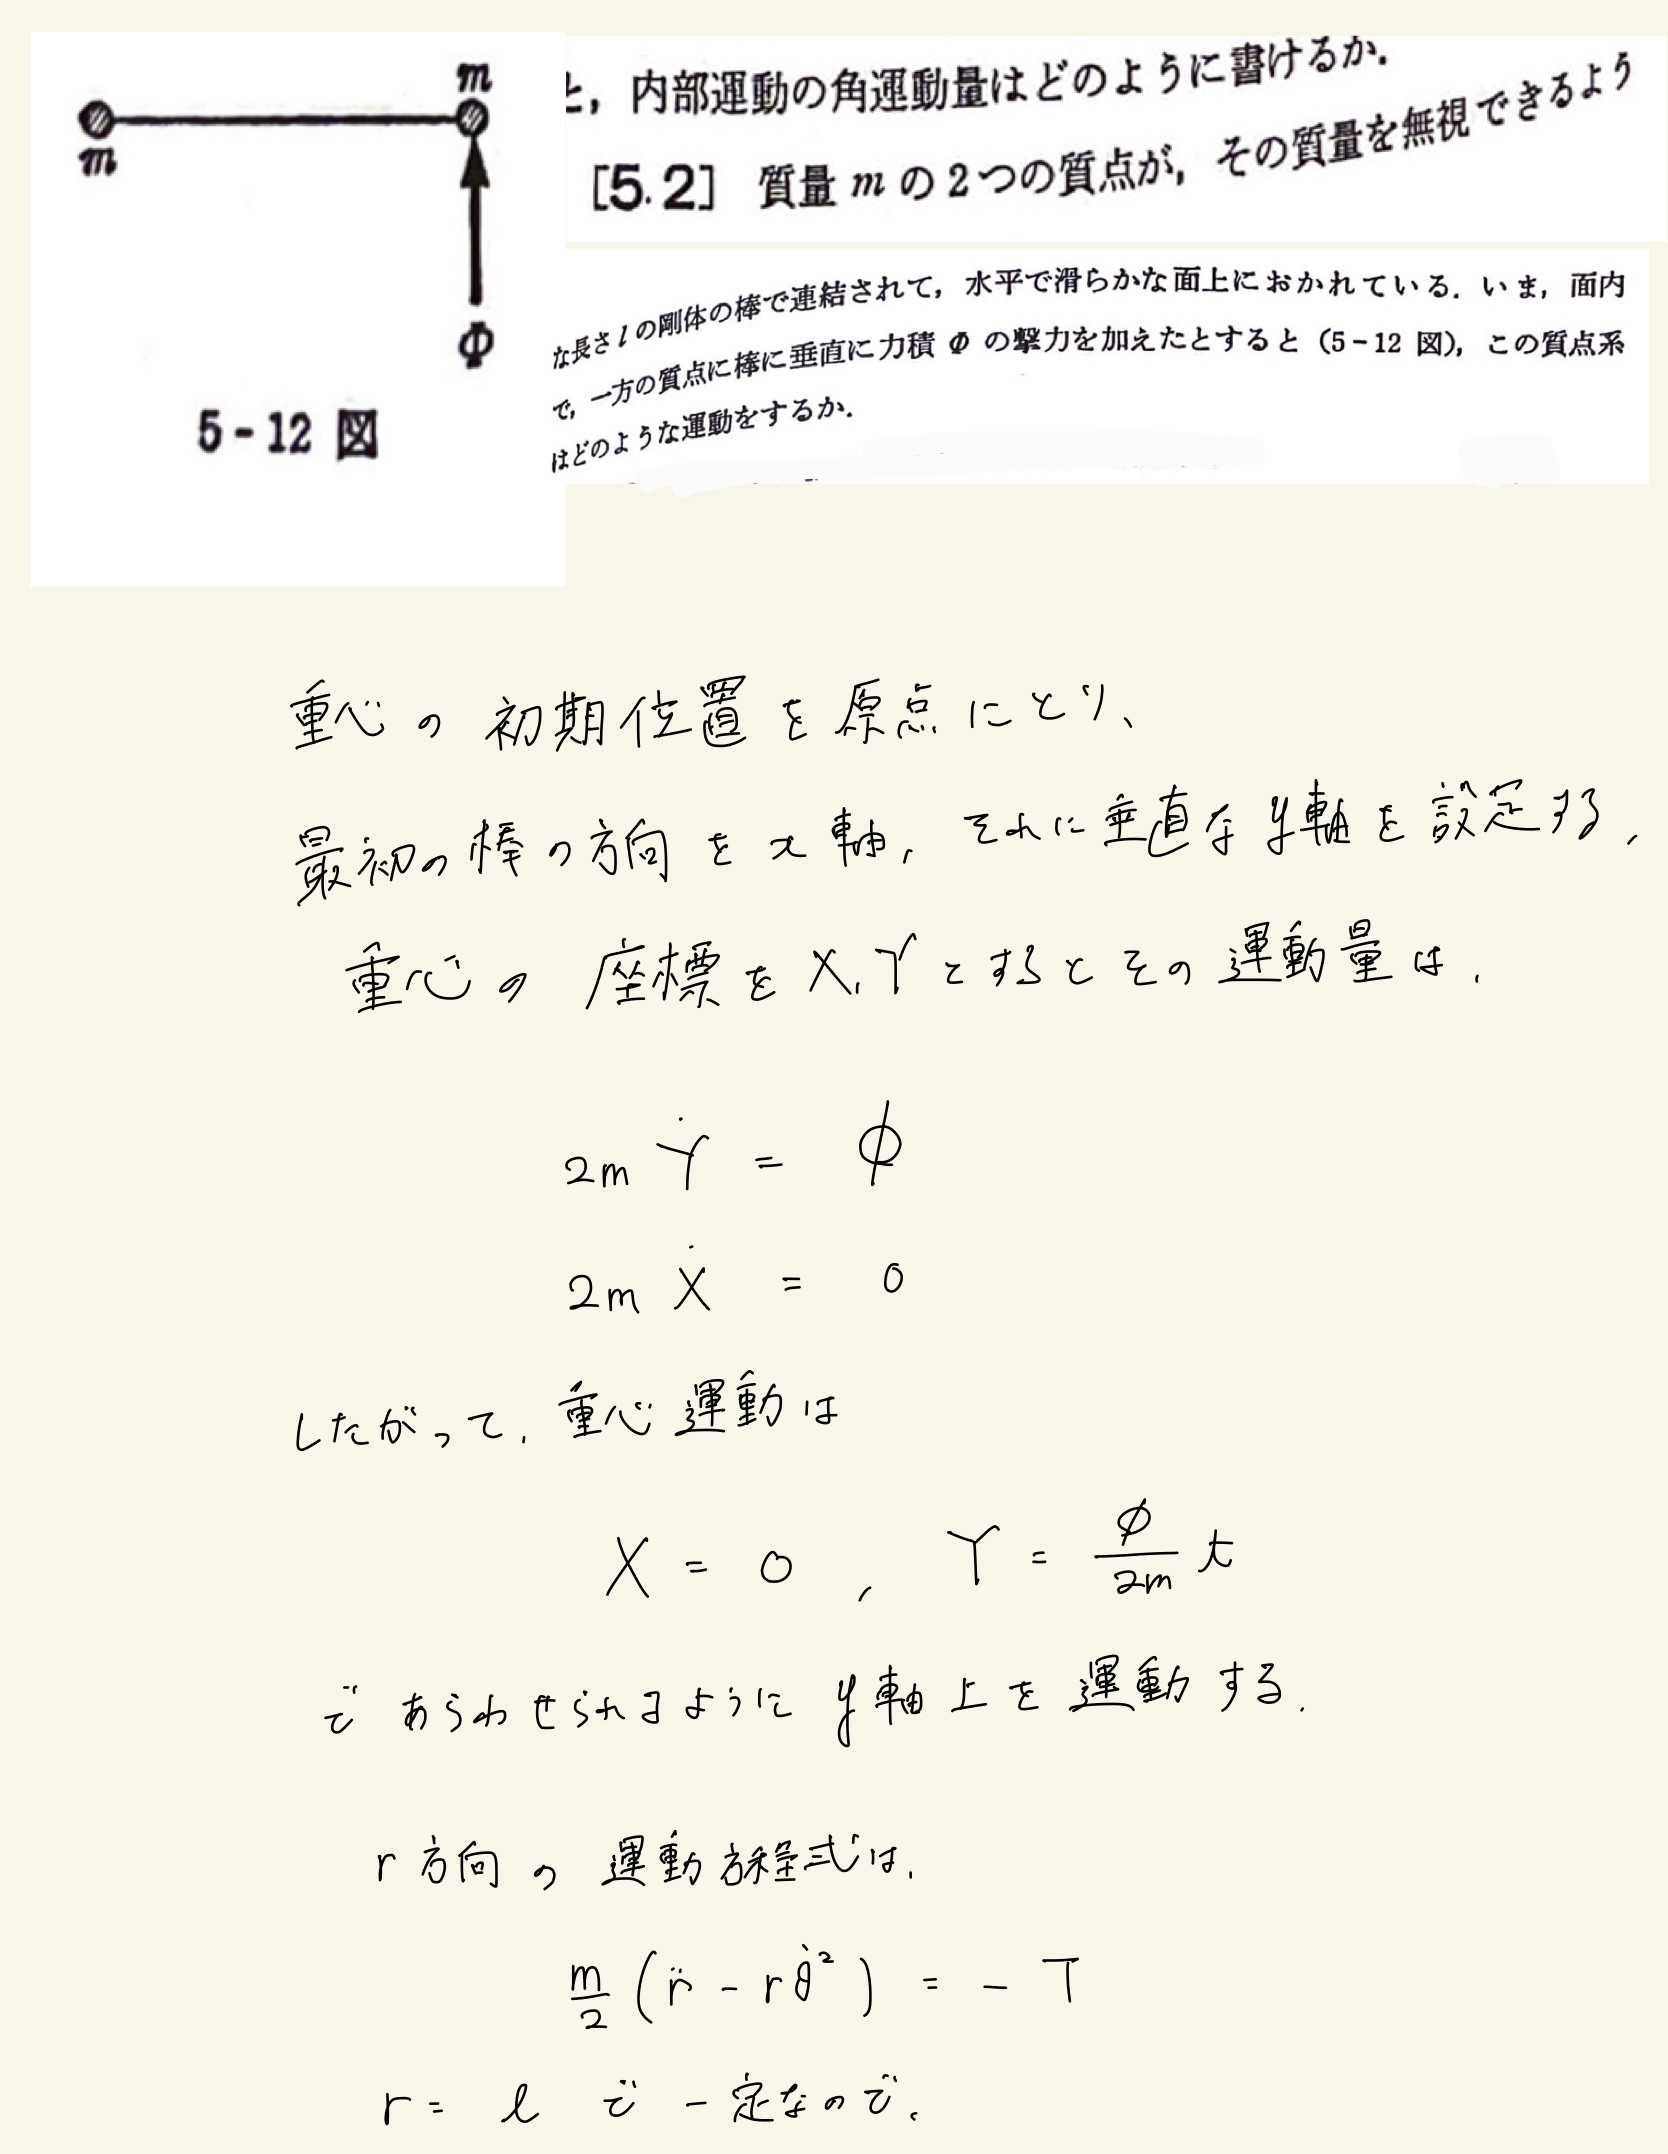 m
m
Φ
5-12 図
と，内部運動の角運動量はどのように書けるか．
[5.2] 質量 m の2つの質点が，その質量を無視できるよう
な長さ l の剛体の棒で連結されて，水平で滑らかな面上におかれている．いま，面内
で，一方の質点に棒に垂直に力積 Φ の撃力を加えたとすると（5-12 図），この質点系
はどのような運動をするか．
重心の初期位置を原点にとり、
最初の棒の方向をx軸，それに垂直なy軸を設定する，
重心の座標をX,Yとするとその運動量は，
2mẎ = φ
2mẊ = 0
したがって，重心運動は
X = 0 , Y = φ/2m t
であらわせられるようにy軸上を運動する．
r方向の運動方程式は，
m/2 (r̈ - rθ̇²) = - T
r = l で一定なので，